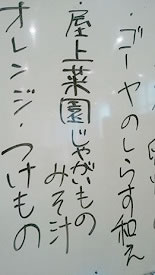 ・ゴーヤのしらす和え
・屋上菜園じゃがいもの
みそ汁
オレンジ・つけもの